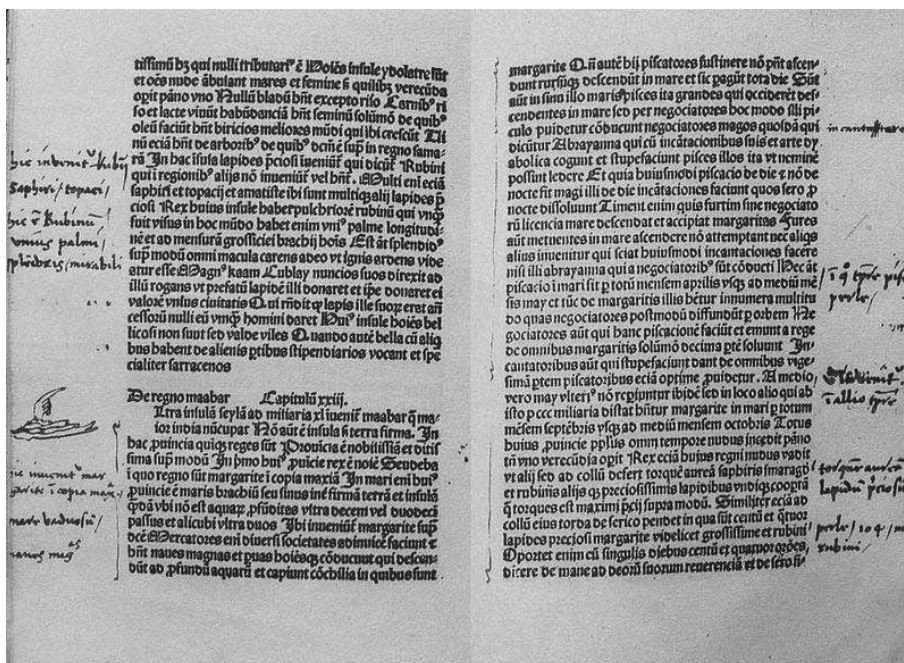 tissimū hz qui nulli tributariꝰ ē Hoīes insule ydolatre sūt
et oēs nude ābulant mares et femine sꝫ quilibꝫ verecūda
opit pāno vno Nullū bladū hn̄t excepto riso Carnibꝰ ri
so et lacte viuūt habūdanciā hn̄t seminū solūmō de quibꝰ
oleū faciūt hn̄t biricios meliores mūdi qui ibi crescūt Ui
nū eciā hn̄t de arboribꝰ de quibꝰ dc̄m ē sup̄ in regno sama-
rū In hac īsula lapides p̄ciosi īueniūt̄ qui dicūt̄ Rubini
qui ī regionibꝰ alijs nō īueniūt̄ vel hn̄t. Multi eni eciā
saphiri et topacij et amatiste ibi sunt multiqꝫ alij lapides p̄
ciosi Rex huius insule habet pulchriorē rubinū qui vnqꝫ
fuit visus in hoc mūdo habet enim vniꝰ palme longitudi-
nē et ad mensurā grossiciei brachij hoīs Est āt splendidꝰ
sup̄ modū omni macula carens adeo vt ignis ardens vide
atur esse Magnꝰ kaam Cublay nuncios suos direxit ad
illū rogans vt prefatū lapidē illi donaret et ip̄e donaret ei
valorē vnius ciuitatis Qui rn̄dit qꝫ lapis ille suoꝝ erat an̄
cessorū nulli eū vnqꝫ homini daret Huiꝰ insule hoīes bel
licosi non sunt sed valde viles Quando autē bella cū aliq
bus habent de alienis p̄tibus stipendiarios vocant et spē
cialiter sarracenos
De regno maabar Capitulū xxiii.
Ultra insulā seylā ad miliaria xl īueniī maabar q̄ ma-
ior india nūcupat̄ Nō aūt ē insula sꝫ terra firma. In
hac ꝓuincia quiqꝫ reges sūt Prouīcia ē nobilissīa et ditis
sima sup̄ modū In p̄mo huiꝰ ꝓuīcie rex ē noīe Seudeba
ī quo regno sūt margarite ī copia maxīa In mari eni huiꝰ
ꝓuincie ē maris brachiū seu sinus inē firmā terrā et insulā
q̄dā vbi nō est aquaꝝ ꝓfūditas vltra decem vel duodecī
passus et alicubi vltra duos Ibi inueniūt̄ margarite sup̄
dc̄e Mercatores eni diuersi societates adinuicē faciunt et
hn̄t naues magnas et ꝑuas hoīesqꝫ cōducunt qui descen-
dūt ad ꝓfundū aquarū et capiunt cōchilia in quibus sunt
hic inuenit̄ Rubi
Saphiri / topaci /
hic ē Rubinū /
vnius palmi /
splēdēs / mirabili
hic inuenit̄ mar
garite ī copia maxᵃ
mare vaduosū /
margarite Qn̄ autē hij piscatores sustinere nō pn̄t ascen-
dunt rursūqꝫ descendūt in mare et sic pagūt tota die Sūt
aūt in sinu illo maris pisces ita grandes qui occiderēt des-
cendentes in mare sed per negociatores hoc modo illi pi-
culo puidetur cōducunt negociatores magos quosdā qui
dicūtur Abrayanna qui cū incātacionibus suis et arte dy
abolica cogunt et stupefaciunt pisces illos ita vt neminē
possint ledere Et quia huiusmodi piscacio de die et nō de
nocte fit magi illi de die incātaciones faciunt quos sero ꝓ
nocte dissoluunt Timent enim quis furtim sine negociato
rū licencia mare descendat et accipiat margaritas Fures
aūt metuentes in mare ascendere nō attemptant nec aliqs
alius inuenitur qui sciat huiusmodi incantaciones facere
nisi illi abrayanna qui a negociatoribꝰ sūt cōducti Hec āt
piscacio ī mari fit ꝑ totū mensem aprilis vsqꝫ ad mediū mē
sis may et tūc de margaritis illis hētur innumera multitu
do quas negociatores postmodū diffundūt ꝑ orbem Ne
gociatores aūt qui hanc piscacionē faciūt et emunt a rege
de omnibus margaritis solūmō decima ptē soluunt In-
cantatoribus aūt qui stupefaciunt dant de omnibus vige-
simā ptem piscatoribus eciā optime ꝓuidetur. A medio
vero may vlteriꝰ nō repiuntur ibidē sed in loco alio qui ab
isto p ccc miliaria distat hn̄tur margarite in mari ꝑ totum
mēsem septēbris vsqꝫ ad mediū mensem octobris Totus
huius ꝓuincie ppl̄us omni tempore nudus incedit pāno
tn̄ vno verecūdia opit Rex eciā huius regni nudus vadit
vt alij sed ad collū defert torquē aureā saphiris smaragd
et rubinis alijs qꝫ preciosissimis lapidibus vndiqꝫ coopta
q̄ torques est maximi p̄cij supra modū. Similiter eciā ad
collū eius torda de serico pendet in qua sūt centū et q̄tuor
lapides preciosi margarite videlicet grossissime et rubini
Oportet enim eū singulis diebus centū et quatuor orōes,
dicere de mane ad deorū suorum reuerenciā et de sero si-
incantatores
Torques aurea
lapidū p̄ciosū
perle / 104 /
rubini /